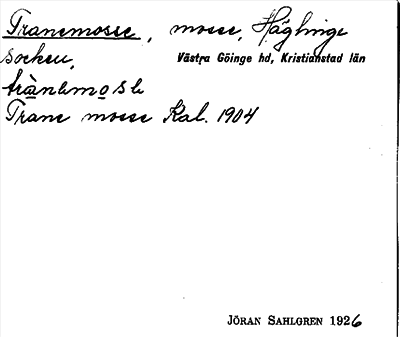 Tranemosse, mosse, Häglinge
socken, Västra Göinge hd, Kristianstad län
trànamo̱sse
Trane mosse Kal. 1904
JÖRAN SAHLGREN 1926